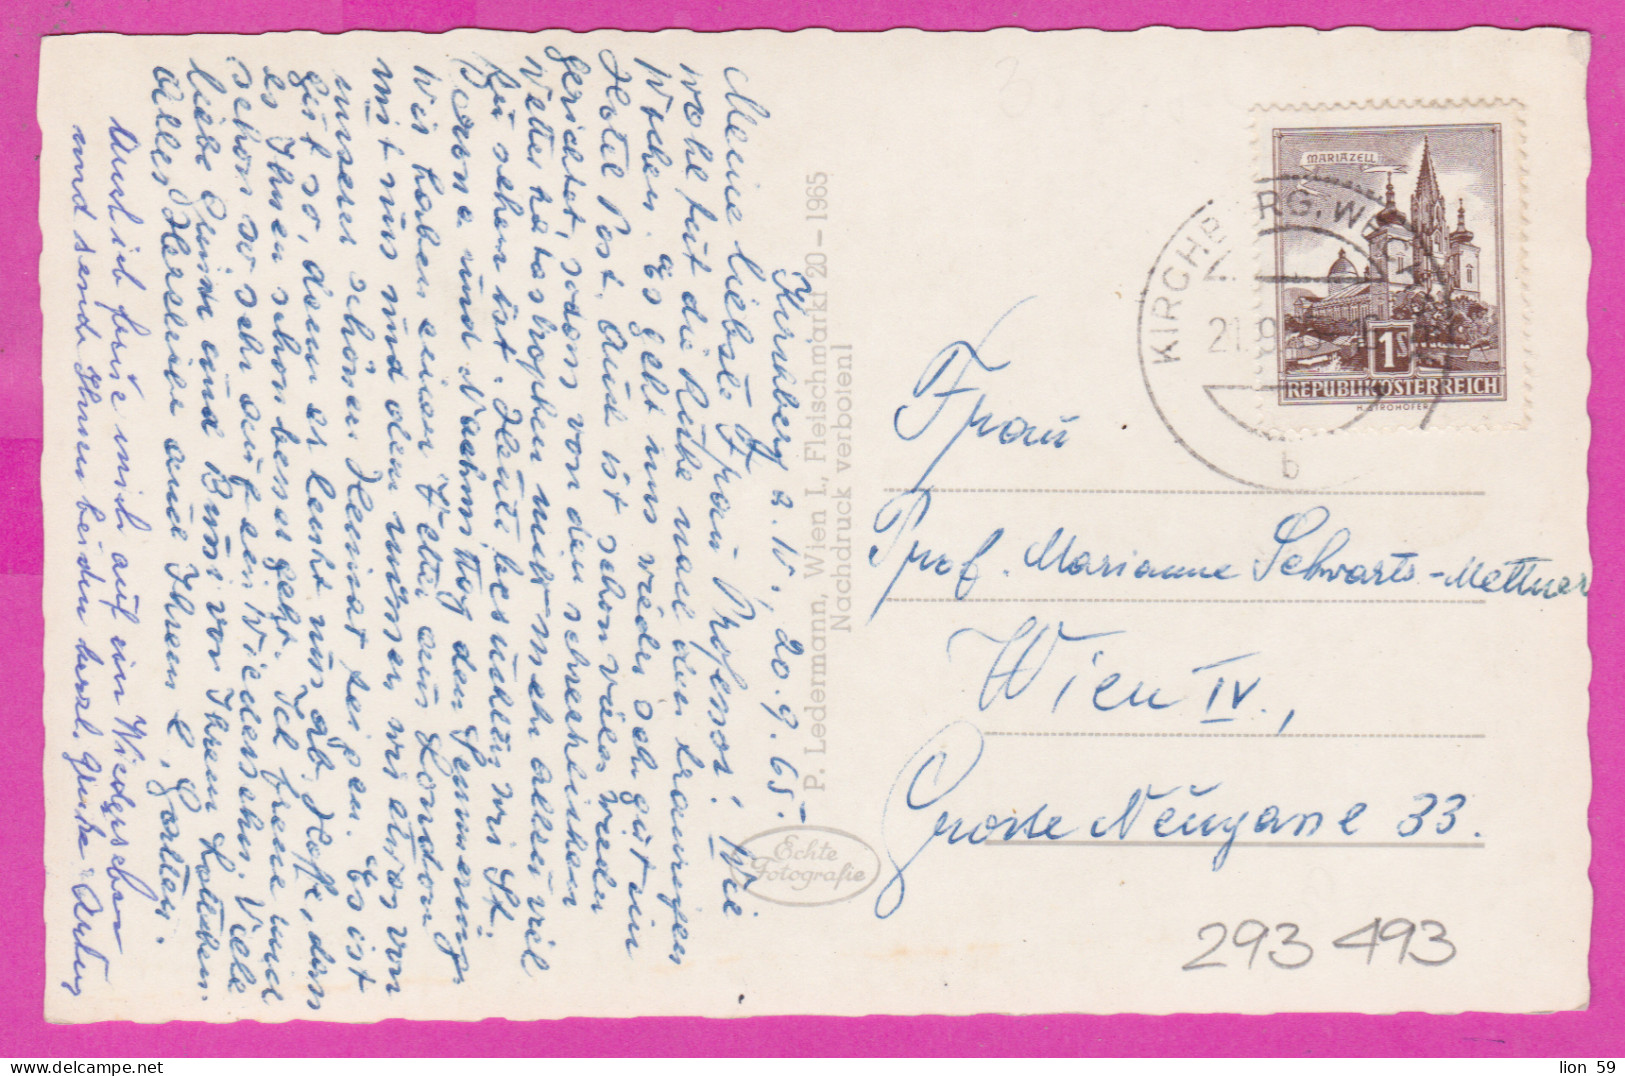 Kirchberg a. W., 20.9.65.
Meine liebste Frau Professor! Wie
wohl tut die Ruhe nach den traurigen
Wochen. Es geht uns wieder sehr gut im
Hotel Post. Auch ist schon vieles wieder
gerichtet, sodass von den schrecklichen
Wetterkatastrophen nicht mehr allzu viel
zu sehen ist. Heute besuchten wir St.
Corona und Nachmittag den Semmering.
Wir haben einen Vetter aus London
mit uns und dem müssen wir etwas von
unserer schönen Heimat zeigen. Es ist
gut so, denn es lenkt uns ab. Hoffe, dass
es Ihnen schon besser geht. Ich freue mich
schon so sehr auf ein Wiedersehn. Viele
liebe Grüsse und Bussi von Ihrem Lottchen.
Alles Herzliche auch Ihrem l. Gatten.
Auch ich freue mich auf ein Wiedersehen
und sende Ihnen beiden herzl. Grüsse Artur
P. Ledermann, Wien I., Fleischmarkt 20 – 1965
Nachdruck verboten!
Echte
Fotografie
MARIAZELL
1S
REPUBLIK ÖSTERREICH
H. STROHOFER
KIRCHBERG, WECHSEL
21.9.
b
Frau
Prof. Marianne Schwarts-Mettner
Wien IV.,
Grosse Neugasse 33.
293 493
lion 59